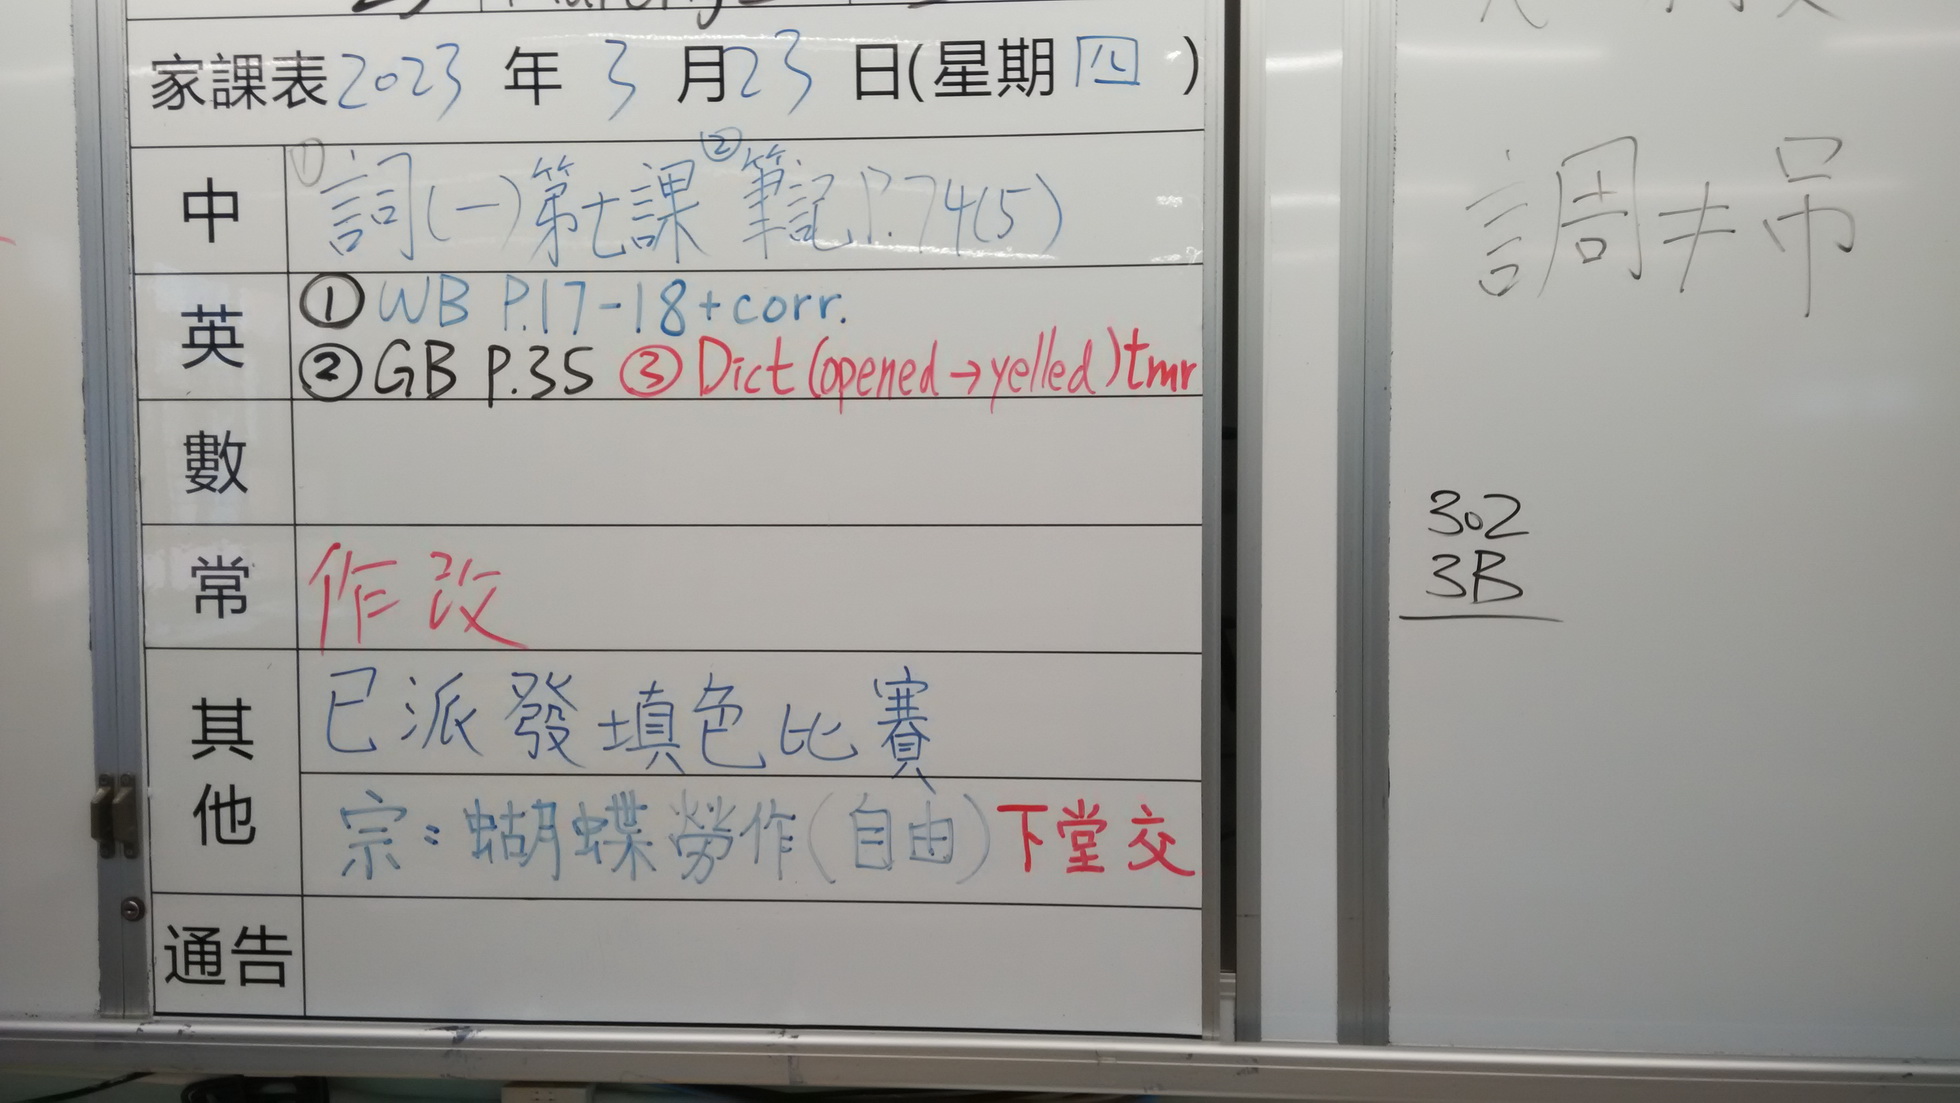 家課表 2023 年 3 月 23 日(星期 四 )
中 ① 詞(一)第七課 ② 筆記 P.74(5)
英 ① WB P.17-18+corr.
② GB P.35 ③ Dict (opened→yelled) tmr
數
常 作改
其他 已派發填色比賽
宗:蝴蝶勞作(自由)下堂交
通告
調≠吊
302
3B